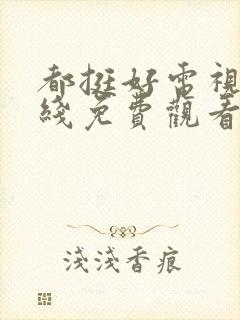 都挺好電視
綫免費觀看
淺淺香痕